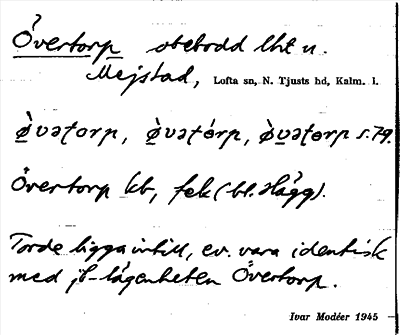 Övertorp obebodd lht u.
Mejstad, Lofta sn, N. Tjusts hd, Kalm. l.
Övertorp kb, fek (bl. Hägg).
Torde ligga intill, ev. vara identisk
med jb-lägenheten Övertorp.
Ivar Modéer 1945